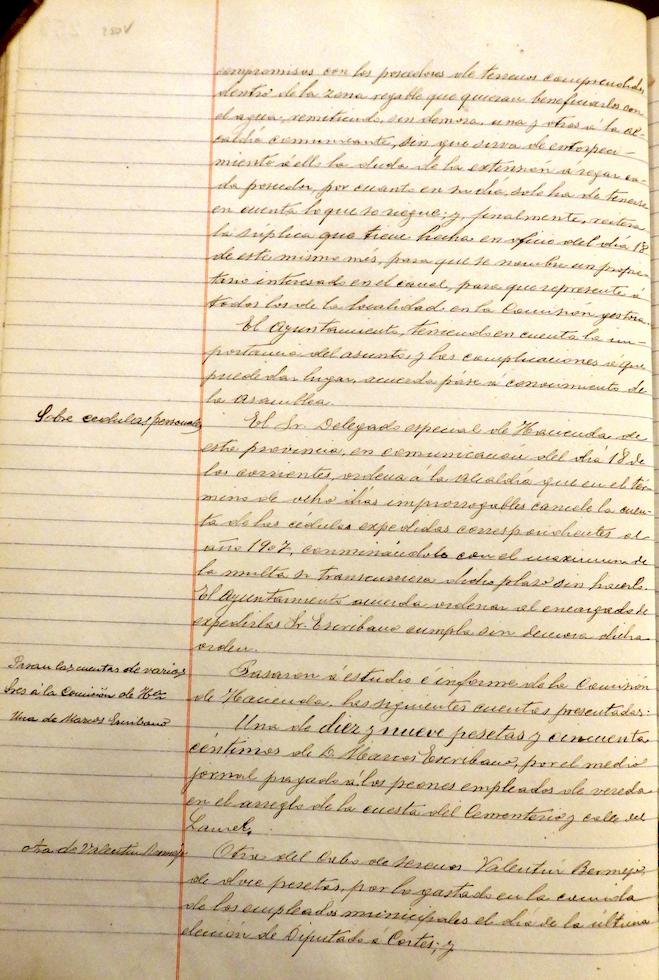 compromisos con los poseedores de terrenos comprendidos
dentro de la zona regable que quieran beneficiarlos con
el agua, remitiendo, sin demora, una y otros á la al-
caldía comunicante, sin que sirva de entorpeci-
miento á ello la duda de la extensión á regar ca-
da poseedor, por cuanto en su día, solo ha de tenerse
en cuenta lo que se riegue; y, finalmente, reitera
la súplica que tiene hecha en oficio del día 18
de este mismo mes, para que se nombre un propie-
tario interesado en el canal, para que represente á
todos los de la localidad en la Comisión gestora.
El Ayuntamiento, teniendo en cuenta la im-
portancia del asunto, y las complicaciones á que
puede dar lugar, acuerda pase á conocimiento de
la Asamblea.
Sobre cédulas personales
El Sr. Delegado especial de Hacienda de
esta provincia, en comunicación del día 18 de
los corrientes, ordena á la Alcaldía que en el tér-
mino de ocho días improrrogables cancele la cuen-
ta de las cédulas expedidas correspondientes al
año 1907, conminándole con el maximum de
la multa si transcurriera dicho plazo sin hacerlo.
El Ayuntamiento acuerda ordenar al encargado de
expedirlas Sr. Escribano cumpla sin demora dicha
orden.
Pasan las cuentas de varios
Sres á la Comisión de Hda
Pasaron á estudio é informe de la Comisión
de Hacienda, las siguientes cuentas presentadas:
Una de Marcos Escribano
Una de diez y nueve pesetas y cincuenta
céntimos de D. Marcos Escribano, por el medio
jornal pagado á los peones empleados de vereda
en el arreglo de la cuesta del Cementerio y calle del
Laurel.
Otra de Valentín Bermejo
Otra del Cabo de serenos Valentín Bermejo
de doce pesetas, por lo gastado en la comida
de los empleados municipales el día de la última
elección de Diputado á Cortes; y